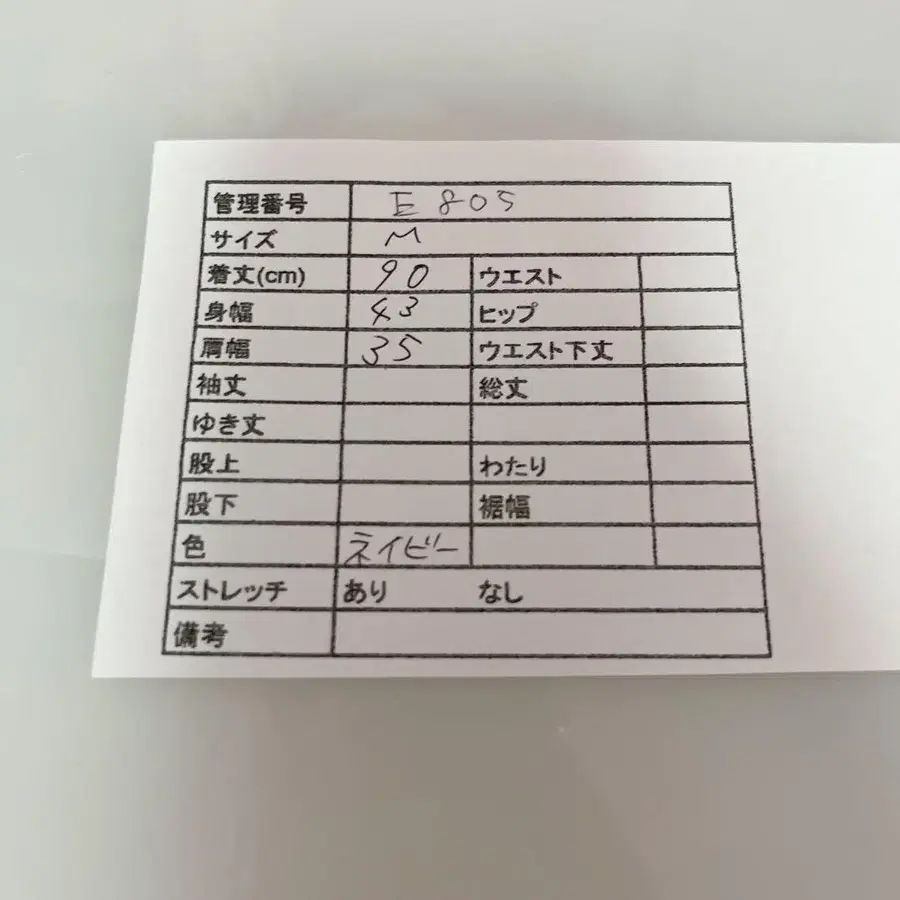 管理番号 E805
サイズ M
着丈(cm) 90 ウエスト
身幅 43 ヒップ
肩幅 35 ウエスト下丈
袖丈 総丈
ゆき丈
股上 わたり
股下 裾幅
色 ネイビー
ストレッチ あり なし
備考